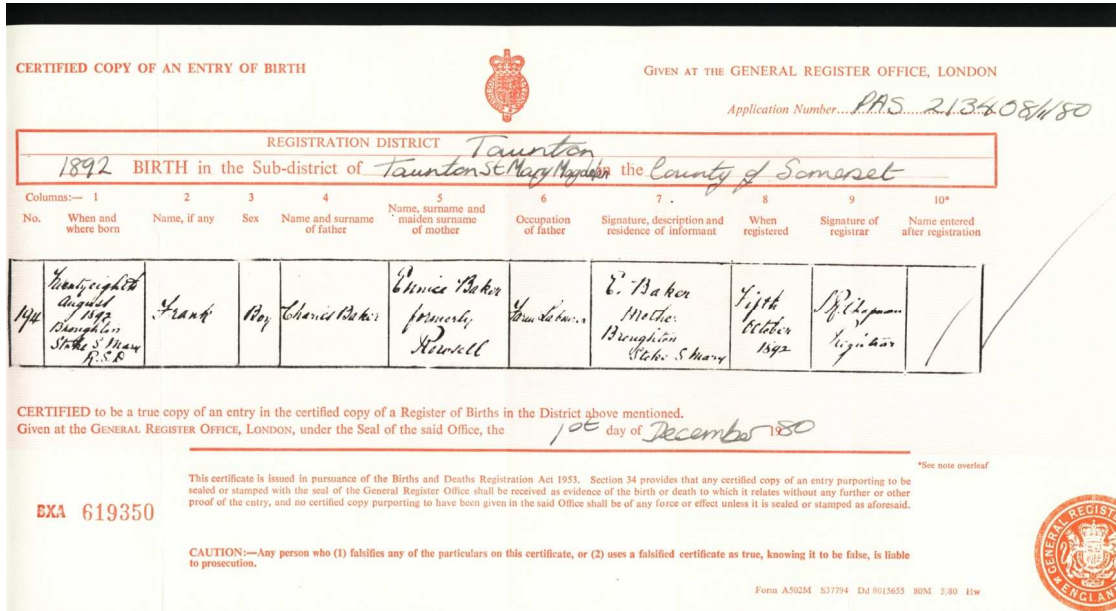 CERTIFIED COPY OF AN ENTRY OF BIRTH
GIVEN AT THE GENERAL REGISTER OFFICE, LONDON
Application Number PAS 213408/1/80
REGISTRATION DISTRICT Taunton
1892 BIRTH in the Sub-district of Taunton St Mary Magdalen in the County of Somerset
Columns:— 1 2 3 4 5 6 7 8 9 10*
No. When and where born
Name, if any
Sex
Name and surname of father
Name, surname and maiden surname of mother
Occupation of father
Signature, description and residence of informant
When registered
Signature of registrar
Name entered after registration
194
Twenty eighth
August
1892
Broughton
Stoke S. Mary
R.S.D
Frank
Boy
Charles Baker
Eunice Baker
formerly
Farm Labourer
E. Baker
Mother
Broughton
Stoke S. Mary
Fifth
October
1892
Chapman
Registrar
CERTIFIED to be a true copy of an entry in the certified copy of a Register of Births in the District above mentioned.
Given at the GENERAL REGISTER OFFICE, LONDON, under the Seal of the said Office, the 1st day of December 1980
*See note overleaf
This certificate is issued in pursuance of the Births and Deaths Registration Act 1953. Section 34 provides that any certified copy of an entry purporting to be
sealed or stamped with the seal of the General Register Office shall be received as evidence of the birth or death to which it relates without any further or other
proof of the entry, and no certified copy purporting to have been given in the said Office shall be of any force or effect unless it is sealed or stamped as aforesaid.
BXA 619350
CAUTION:—Any person who (1) falsifies any of the particulars on this certificate, or (2) uses a falsified certificate as true, knowing it to be false, is liable
to prosecution.
Form A502M S37794 Dd 8015655 80M 5/80 Hw
GENERAL REGISTER
ENGLAND